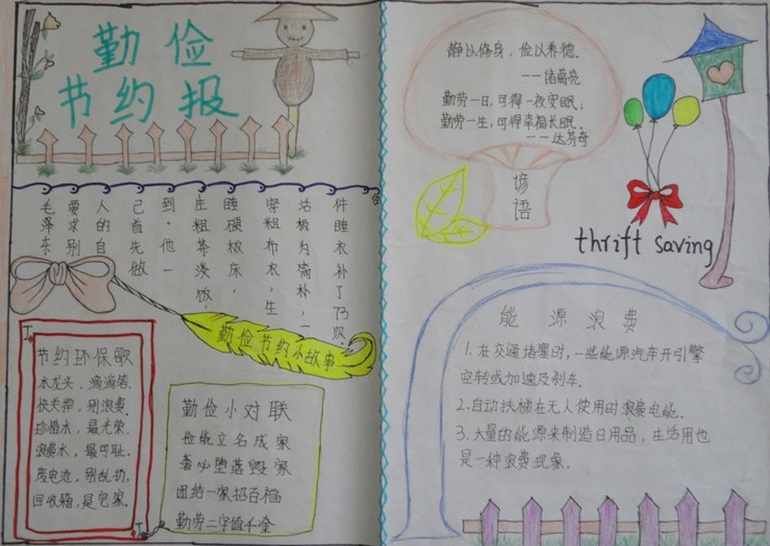 勤俭
节约报
毛泽东
要求别
人的自
己首先做
到。他一
生粗茶淡饭,
睡硬板床,
穿粗布衣,生
活极为简朴,一
件睡衣补了73次.
勤俭节约小故事
节约环保歌
水龙头,滴滴答.
快关掉,别浪费.
珍惜水,最光荣.
浪费水,最可耻.
废电池,别乱扔,
回收箱,是它家.
勤俭小对联
俭成立名成家
奢必堕落毁家
团结一家招百福
勤劳二字值千金
静以修身,俭以养德.
——诸葛亮
勤劳一日,可得一夜安眠;
勤劳一生,可得幸福长眠.
——达芬奇
谚
语
thrift saving
能源浪费
1.在交通堵塞时,一些能源汽车开引擎
空转或加速及刹车.
2.自动扶梯在无人使用时浪费电能.
3.大量的能源来制造日用品,生活用也
是一种浪费现象.